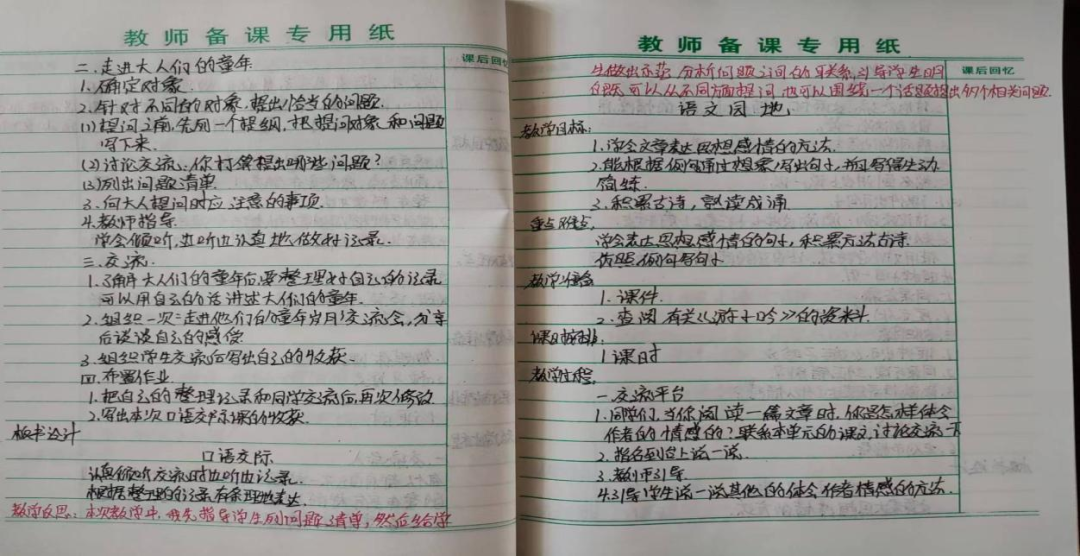 教师备课专用纸
课后回忆
二.走进大人们的童年
1.确定对象
2.针对不同的对象,提出恰当的问题.
(1)提问之前,先列一个提纲,根据提问对象和问题
写下来.
(2)讨论交流:你打算提出哪些问题?
(3)列出问题清单.
3.向大人提问时应注意的事项.
4.教师指导.
学会倾听,边听边认真地做好记录.
三.交流.
1.了解大人们的童年后,要整理好自己的记录
可以用自己的话讲述大人们的童年.
2.组织一次"走进他们的童年岁月"交流会,分享
后谈谈自己的感受
3.组织学生交流后写出自己的收获.
四.布置作业.
1.把自己的整理记录和同学交流后,再次修改
2.写出本次口语交际课的收获.
板书设计
口语交际
认真倾听交流时边听边记录.
根据整理的记录有条理地表达.
教学反思:本次教学中,我先指导学生列问题清单,然后给学
教师备课专用纸
课后回忆
生做出示范,分析问题之间的联系,引导学生明
白既可以从不同方面提问,也可以围绕一个话题提出几个相关问题.
语文园地
教学目标:
1.学会文章表达思想感情的方法.
2.能根据例句通过想象,写出句子,并且写得生动
简练.
3.积累古诗,熟读成诵
重点难点:
学会表达思想感情的句子,积累方法古诗
仿照例句写句子
教学准备
1.课件.
2.查阅有关《游子吟》的资料.
课时安排:
1课时
教学过程:
一.交流平台
1.同学们,当你阅读一篇文章时,你是怎样体会
作者的情感的?联系本单元的课文,讨论交流一下
2.指名到台上说一说.
3.教师引导.
4.引导学生说一说其他的体会作者情感的方法.